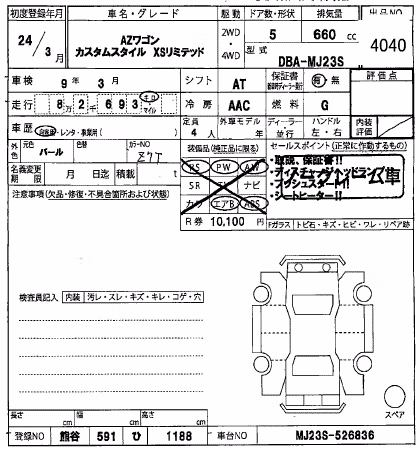 初度登録年月 車名・グレード 駆動 ドア数・形状 排気量 出品NO
24/3月 AZワゴン カスタムスタイル XSリミテッド 2WD・4WD 5 660 cc 4040
型式 DBA-MJ23S
車検 9年3月 シフト AT 保証書 有 無 評価点
走行 8万2千693 キロ・マイル 冷房 AAC 燃料 G
車歴 自家用・レンタ・事業用( ) 定員 4人 外車モデル 年 ディーラー・並行 ハンドル 左・右 内装評価
外色 元色 パール 色替 カラーNO Z7T
装備品(純正品に限る) セールスポイント(正常に作動するもの)
名義変更期限 月 日迄 積載 t
PS PW AW
SR ナビ
エアB ABS
R券 10,100円
・取説、保証書!!
・ディスチャージヘッドランプ
・プッシュスタート!!
・シートヒーター!!
注意事項(欠品・修復・不具合箇所および状態)
Fガラス トビ石・キズ・ヒビ・ワレ・リペア跡
検査員記入 内装 汚レ・スレ・キズ・キレ・コゲ・穴
スペア
長さ cm 幅 cm 高さ cm
登録NO 熊谷 591 ひ 1188 車台NO MJ23S-526836